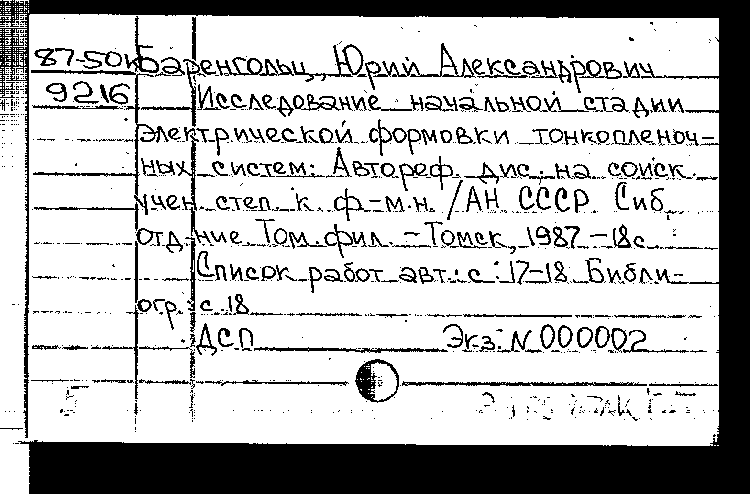 87-50к Баренгольц, Юрий Александрович
9216 Исследование начальной стадии
электрической формовки тонкопленоч-
ных систем: Автореф. дис. на соиск.
учен. степ. к. ф.-м.н. /АН СССР. Сиб.
отд-ние. Том. фил. - Томск, 1987 - 18с.
Список работ авт.: с. 17-18. Библи-
огр.: с. 18
ДСП Экз. N 000002
5